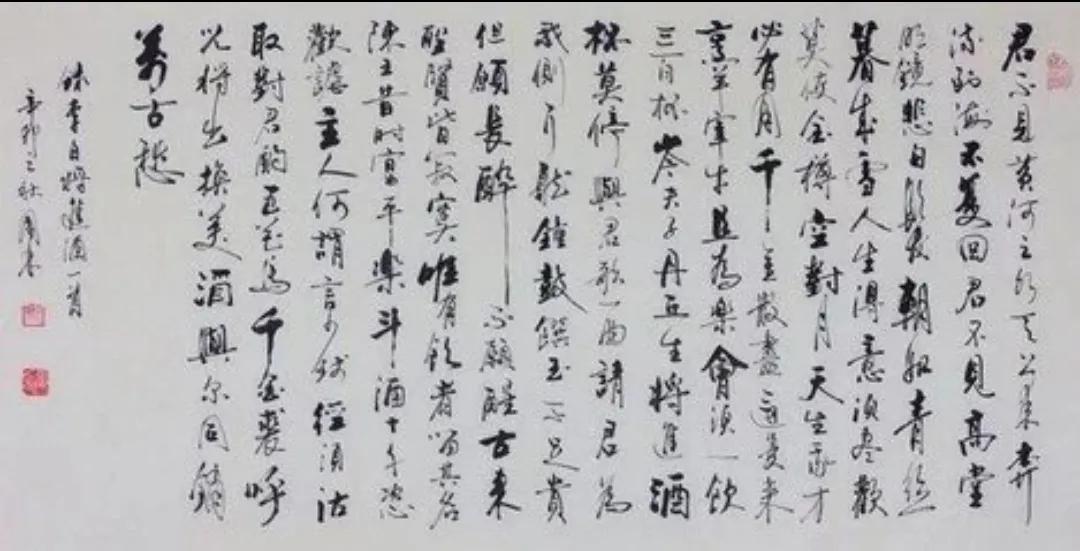 君不見黃河之水天上來奔
流到海不复回君不見高堂
明鏡悲白髮朝如青絲
暮成雪人生得意須盡歡
莫使金樽空對月天生我才
必有用千金散盡還复來
烹羊宰牛且為樂會須一飲
三百杯岑夫子丹丘生將進酒
杯莫停與君歌一曲請君為
我側耳聽鐘鼓饌玉不足貴
但願長醉不願醒古來
聖賢皆寂寞唯有飲者留其名
陳王昔時宴平樂斗酒十千恣
歡謔主人何謂言少錢徑須沽
取對君酌五花馬千金裘呼
兒將出換美酒與尔同銷
萬古愁
李白將進酒一首
辛卯之秋周